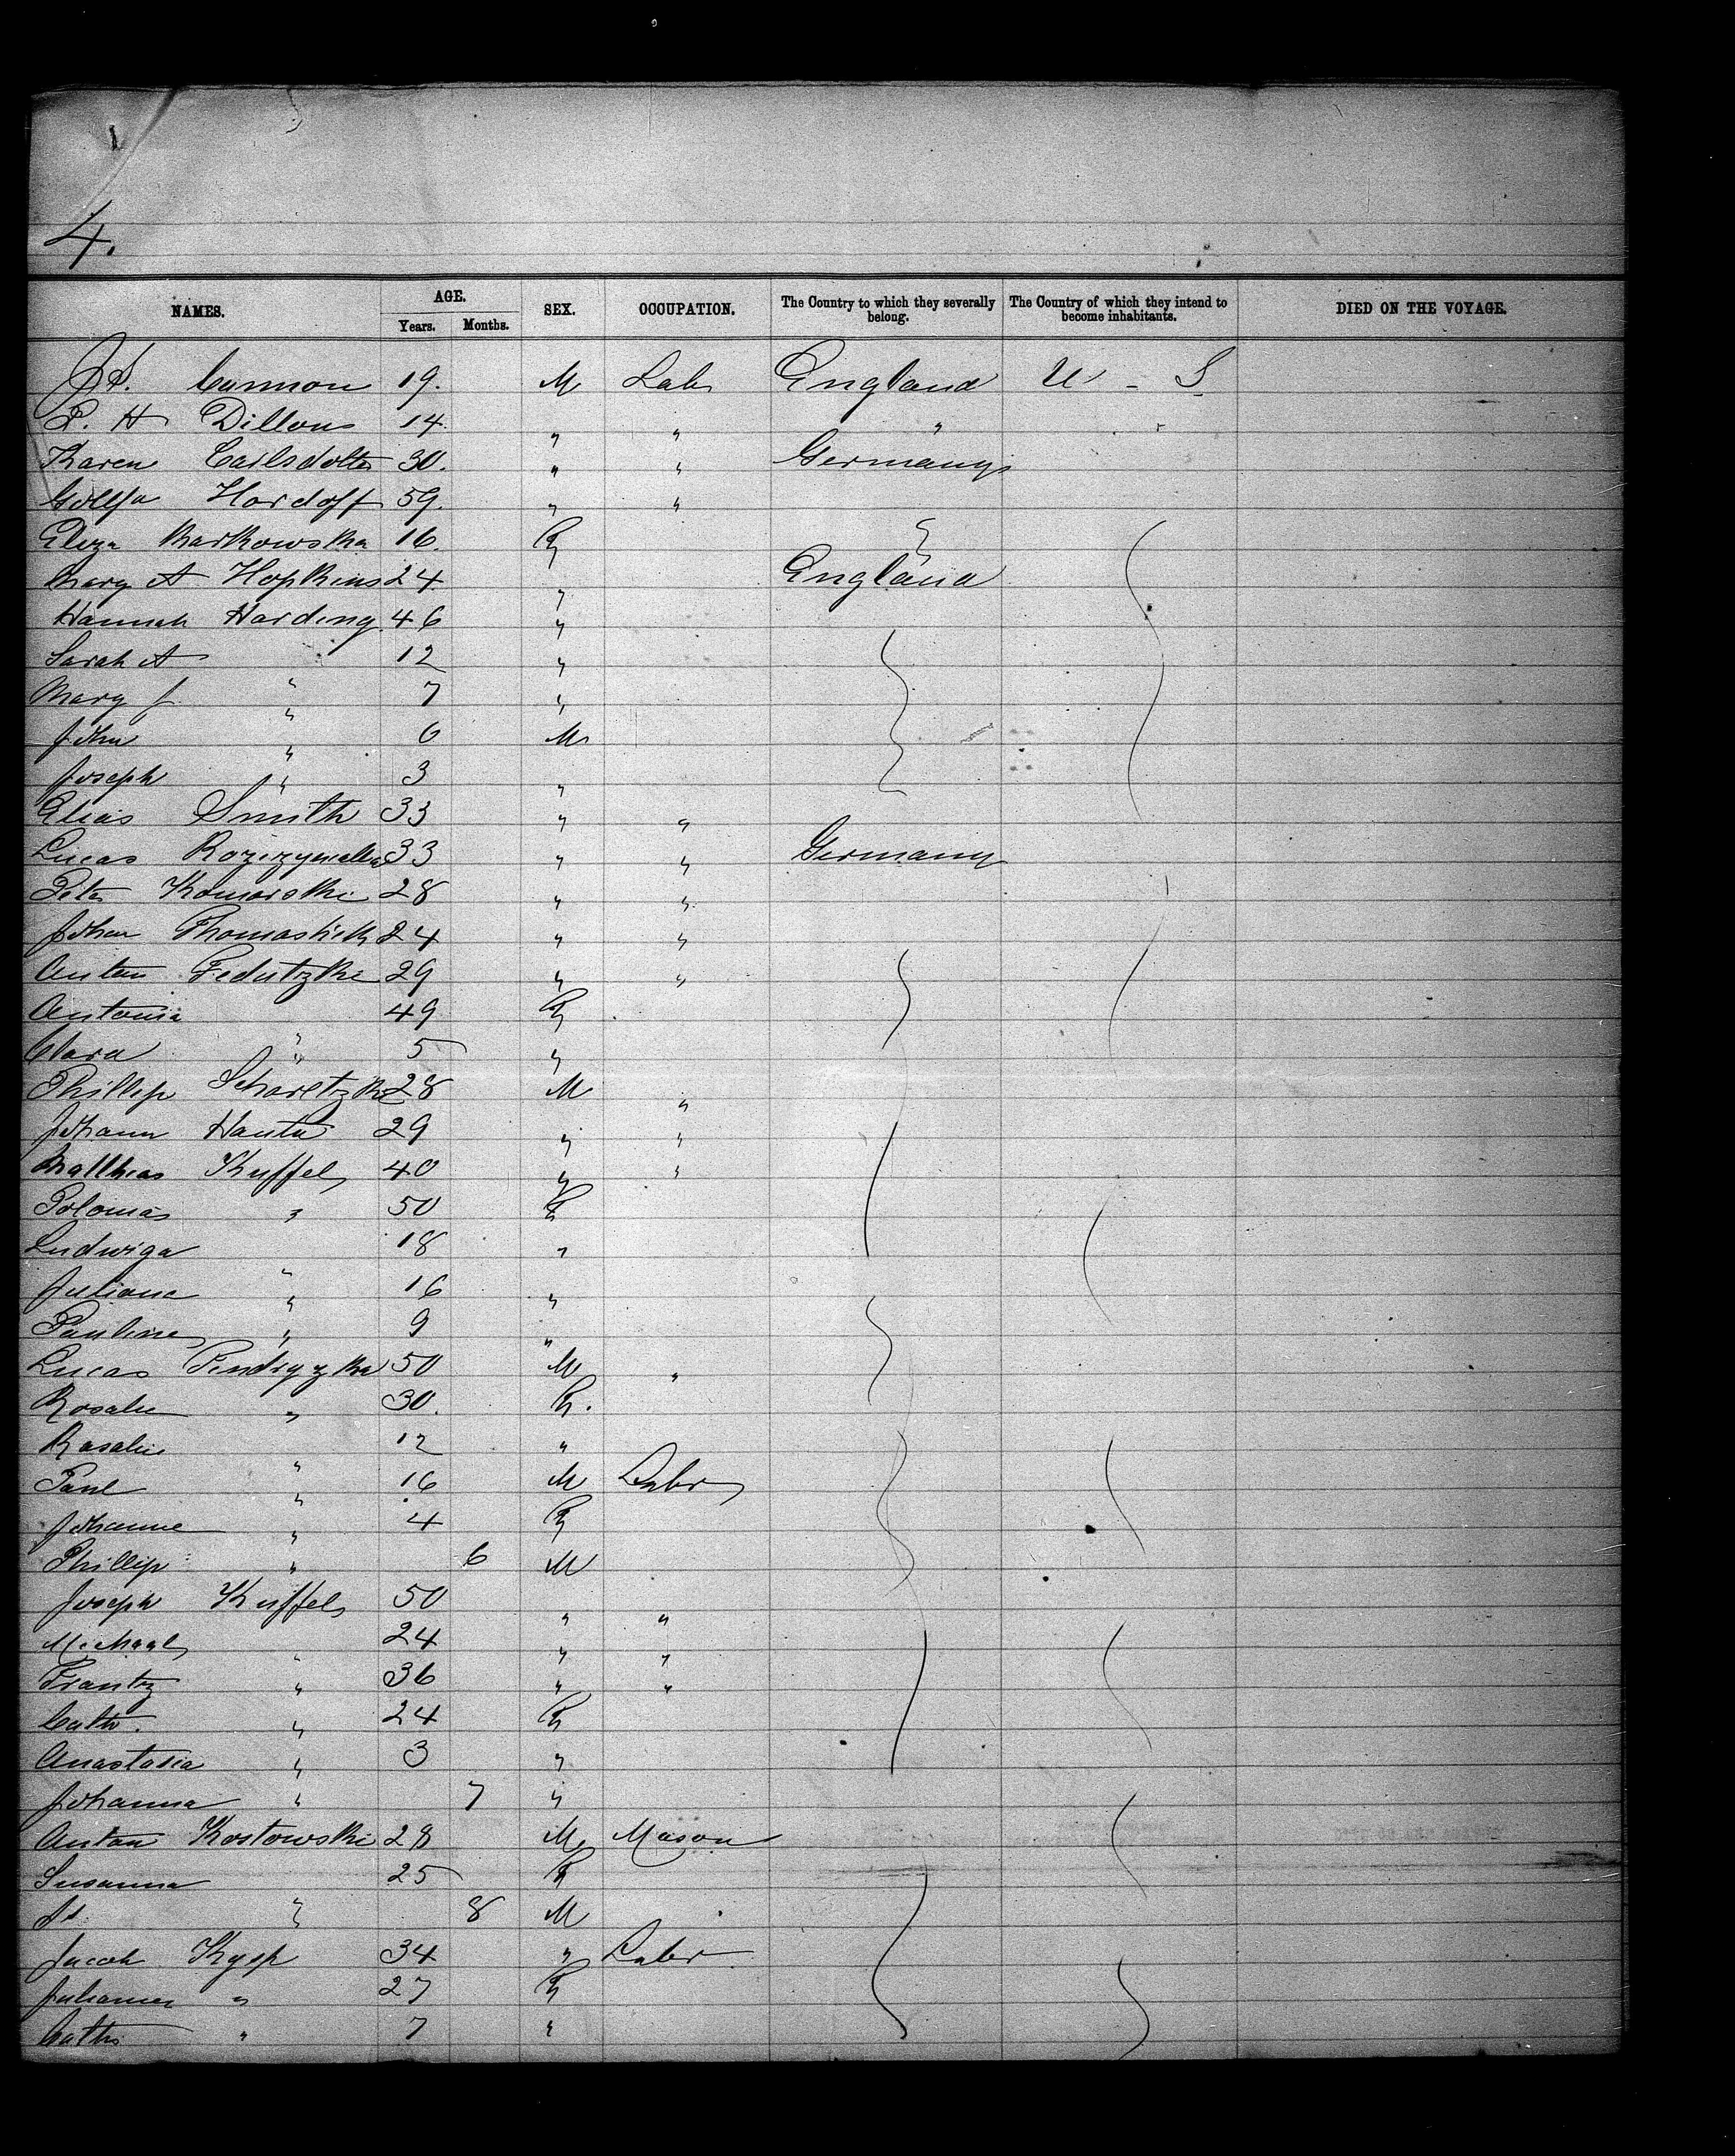 4.
NAMES. AGE. Years. Months. SEX. OCCUPATION. The Country to which they severally belong. The Country of which they intend to become inhabitants. DIED ON THE VOYAGE.
Cannon 19. M Labr England U. - S
P. H Dillon 14 " " "
Karen Carlsdotter 30. " " Germany
Hordoff 59. " "
Eliza Karkowska 16. F
Mary A Hopkins 24. " England
Hannah Harding 46 "
Sarah A " 12 "
Mary J " 7 "
John " 6 M
Joseph " 3 "
Elias Smith 33 " "
Lucas 33 " " Germany
Peter Komorski 28 " "
Johan 24 " "
Anton Fedutzki 29 " "
Antonia 49 F
Clara " 5 "
Phillip 28 M "
Johann Hanta 29 " "
Matthias Kuffel 40 " "
Polomas " 50 F
Ludwiga 18 "
Juliana " 16 "
Pauline " 9 "
Lucas 50 M "
Rosalie " 30. F.
Rosalie " 12 "
Paul " 16 M Labr
Johanne " 4 F
Phillip " 6 M
Joseph Kuffel 50 " "
Michael " 24 " "
Frantz " 36 " "
Cath. " 24 F
Anastasia " 3 "
Johanna " 7 "
Anton Kostowski 28 M Mason
Susanna 25 F
" 8 M
Jacob 34 " Labr
" 27 F
Cath " 7 "